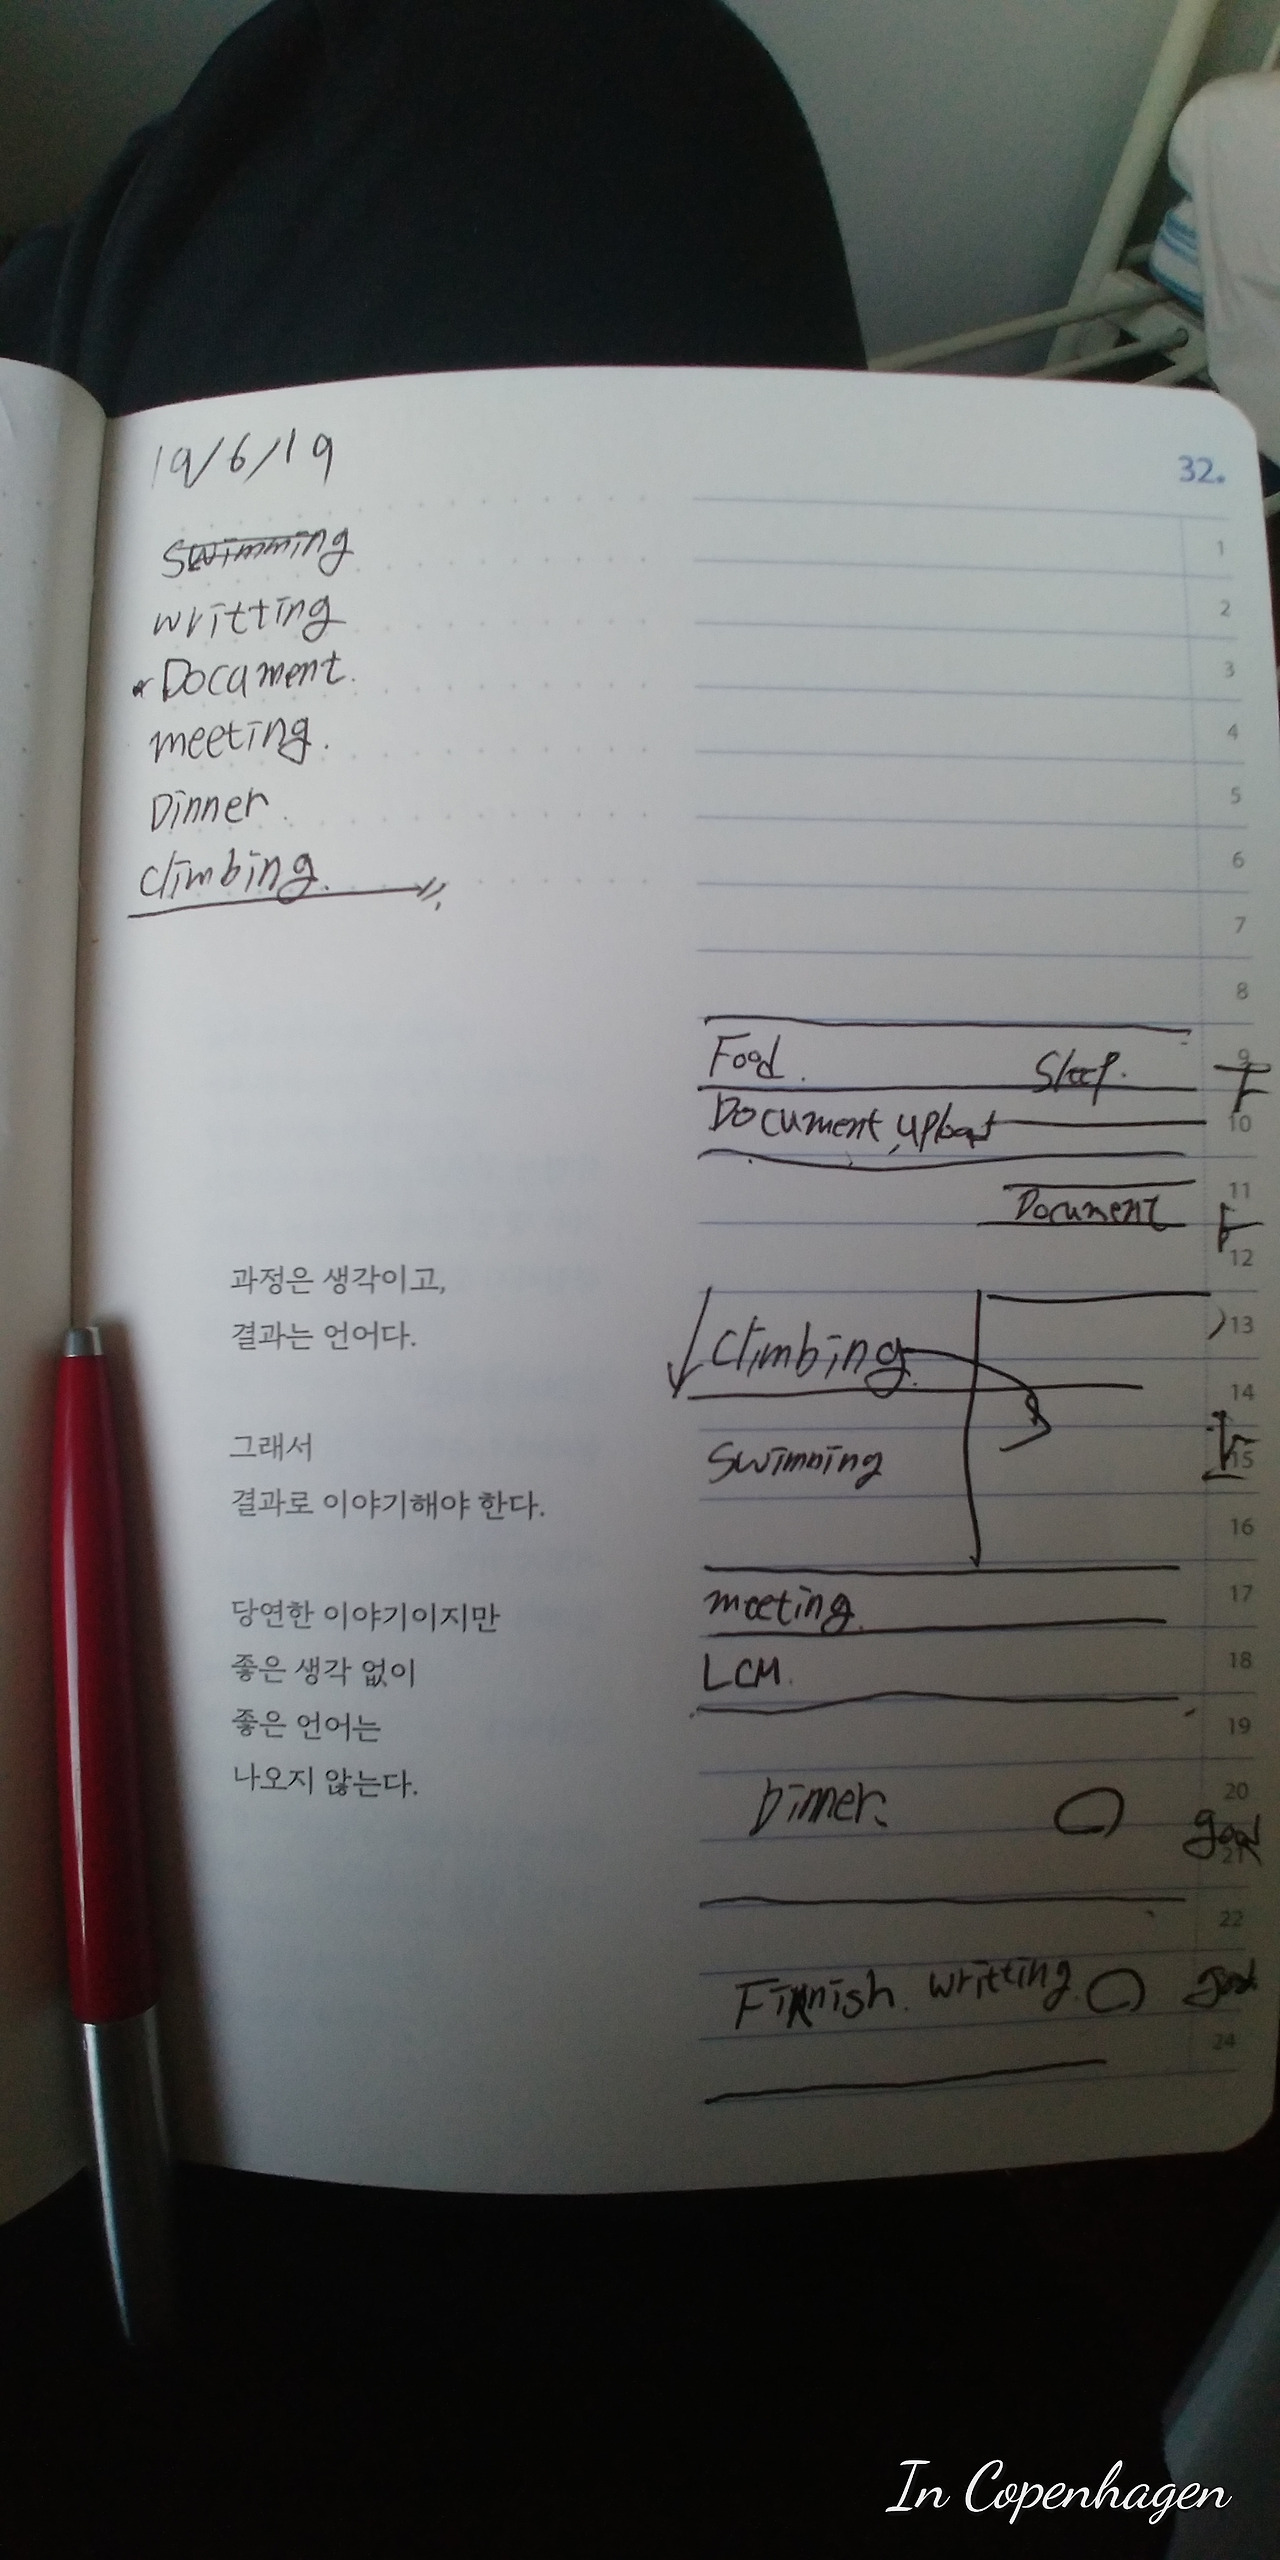 19/6/19
Swimming
writting
Document.
meeting.
Dinner.
climbing.
과정은 생각이고,
결과는 언어다.
그래서
결과로 이야기해야 한다.
당연한 이야기이지만
좋은 생각 없이
좋은 언어는
나오지 않는다.
32.
1
2
3
4
5
6
7
8
Food. Sleep. 9
Document 10
Document 11
12
13
climbing. 14
Swimming 15
16
meeting. 17
LCM. 18
19
Dinner. 20
good 21
22
Finnish writting. good
24
In Copenhagen